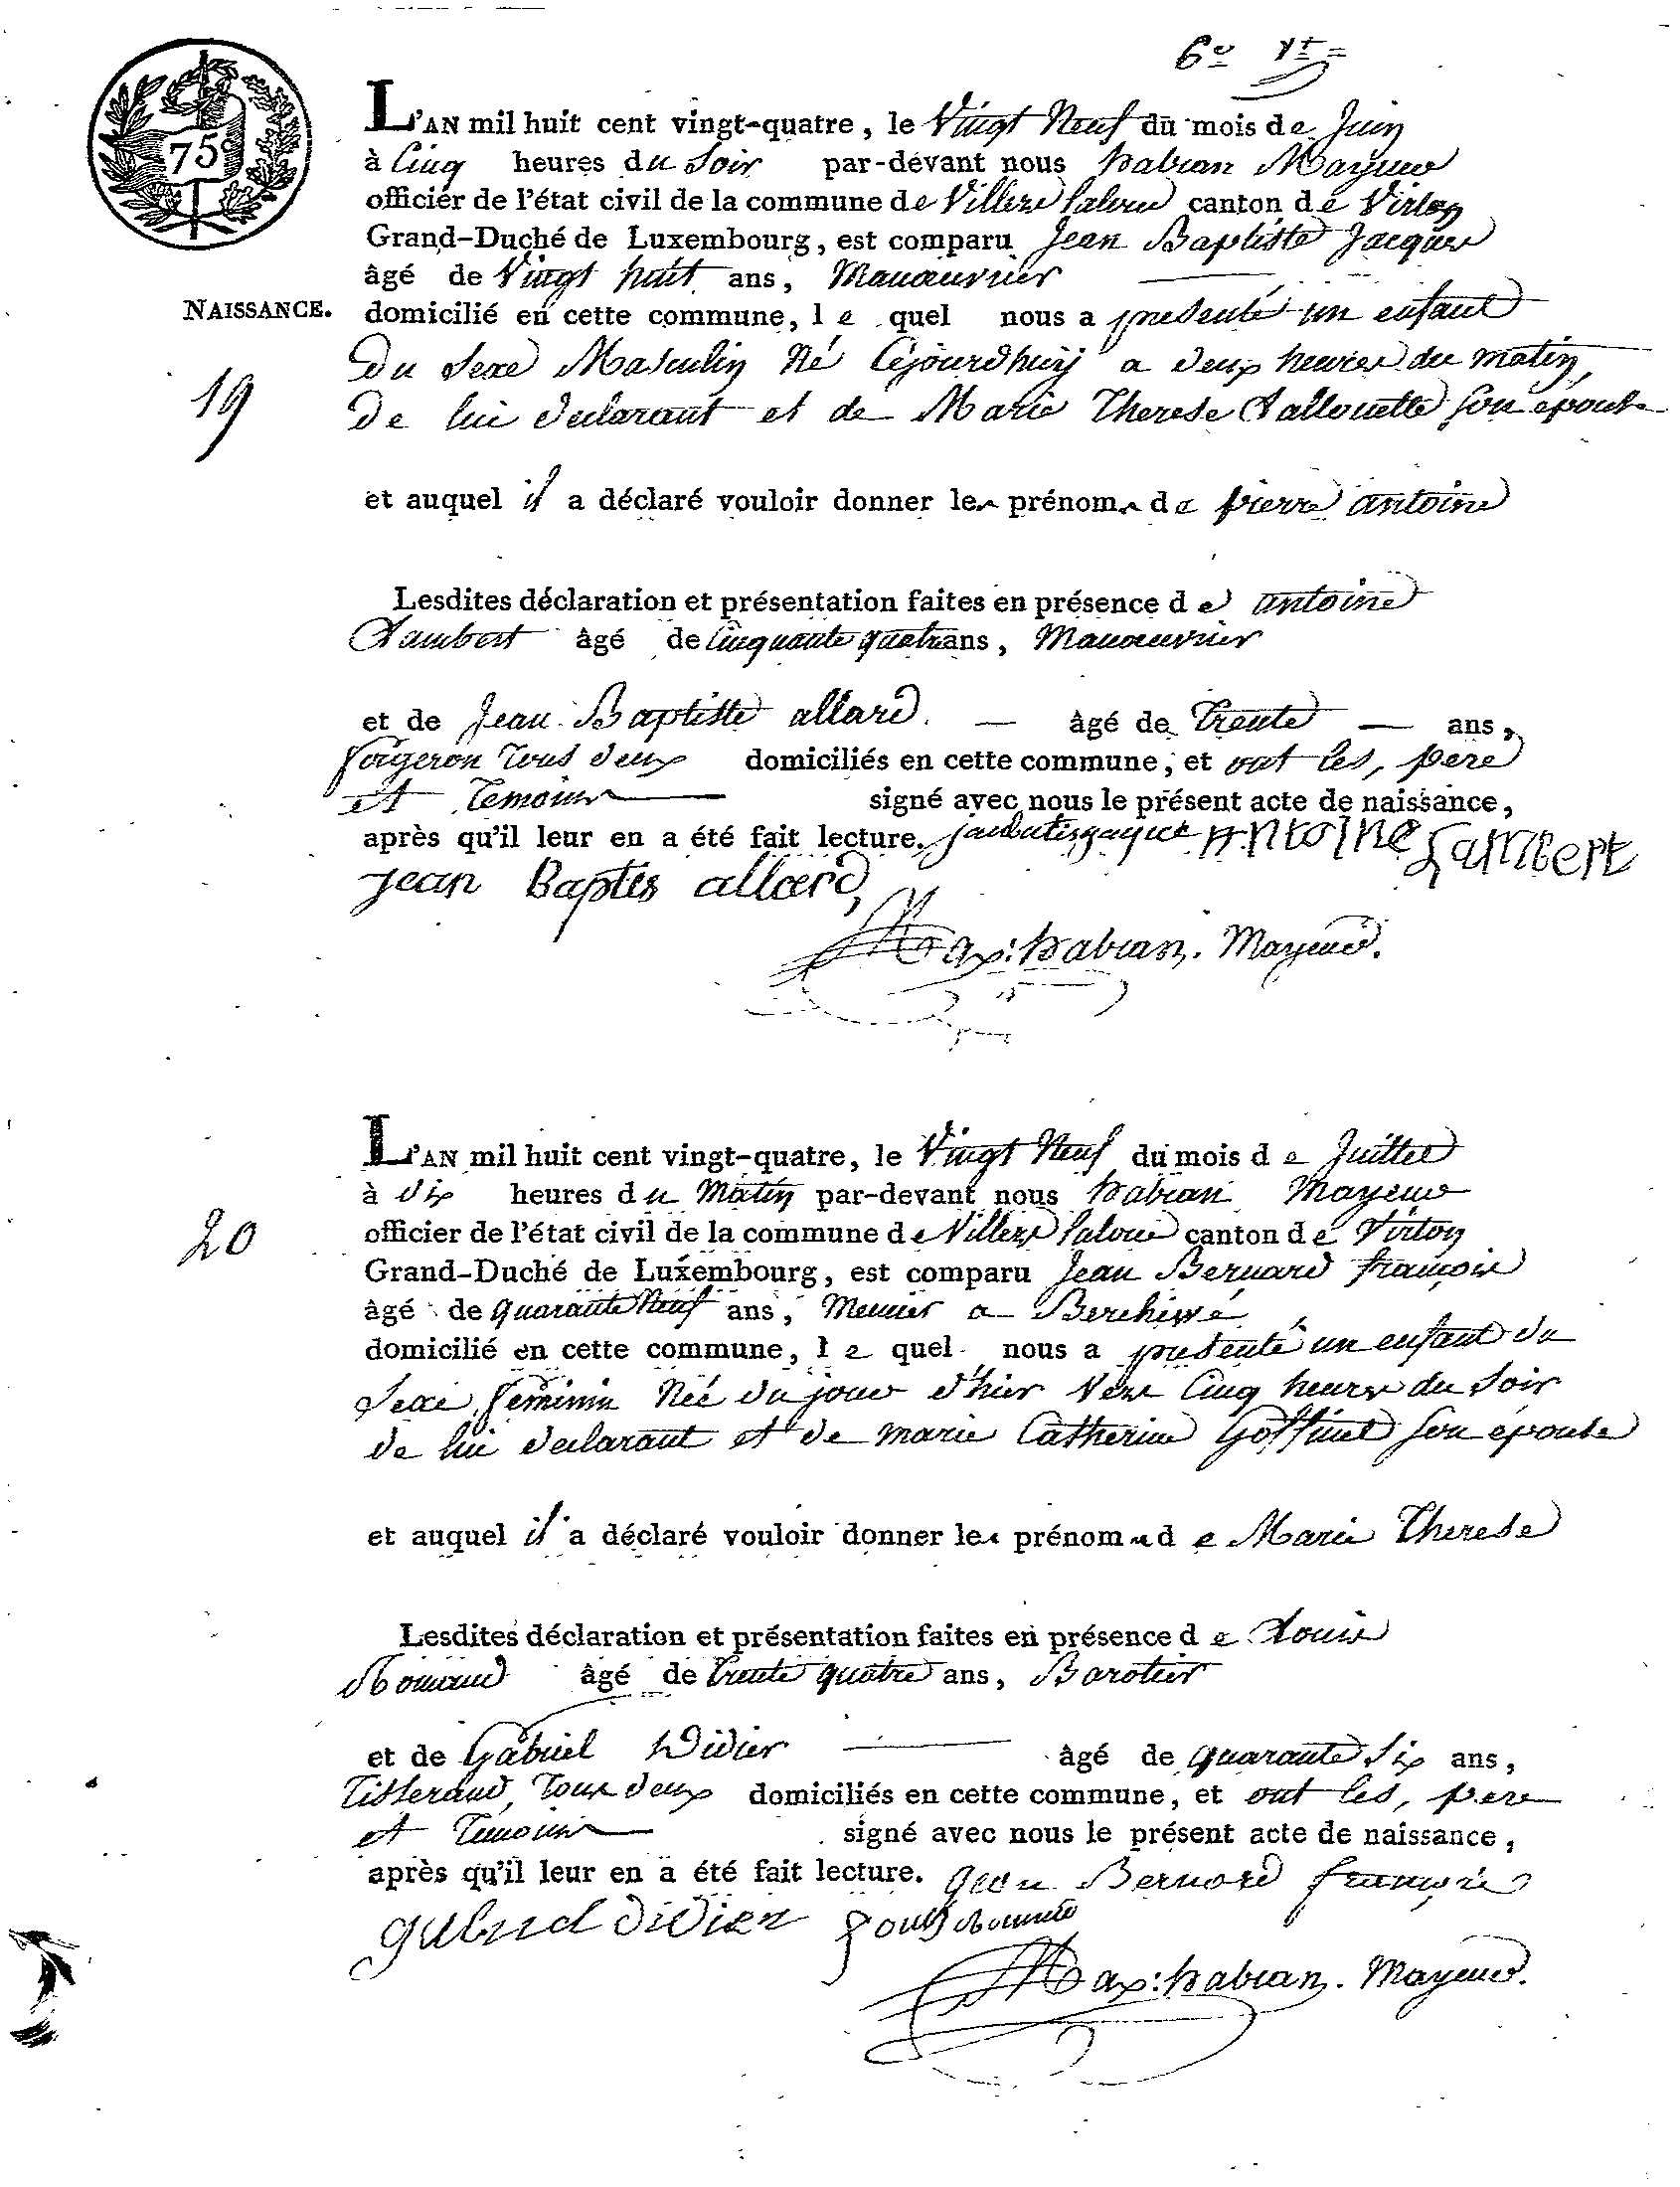 6e
75c
L'AN mil huit cent vingt-quatre, le Vingt Neuf du mois de Juin
à Cinq heures du Soir par-devant nous habran Mayeur
officier de l'état civil de la commune de Villers Laloue canton de Virton
Grand-Duché de Luxembourg, est comparu Jean Baptiste Jacques
âgé de Vingt huit ans, Manœuvrier
NAISSANCE. domicilié en cette commune, le quel nous a presenté un enfant
Du Sexe Masculin Né Cejourdhuy a deux heures du matin,
19
De lui declarant et de Marie Therese Lallouette son epouse
et auquel il a déclaré vouloir donner les prénoms de pierre antoine
Lesdites déclaration et présentation faites en présence de antoine
Lambert âgé de Cinquante quatre ans, Manœuvrier
et de Jean Baptiste allard. — âgé de Trente — ans,
forgeron Tous deux domiciliés en cette commune, et ont les, pere
et Temoins signé avec nous le présent acte de naissance,
après qu'il leur en a été fait lecture. Antoine Lambert
Jean Baptis allard,
Max: habran. Mayeur.
L'AN mil huit cent vingt-quatre, le Vingt Neuf du mois de Juillet
à dix heures du Matin par-devant nous habran Mayeur
20
officier de l'état civil de la commune de Villers Laloue canton de Virton
Grand-Duché de Luxembourg, est comparu Jean Bernard françois
âgé de quarante Neuf ans, Meunier a Berchiwé
domicilié en cette commune, le quel nous a presenté un enfant du
Sexe feminin Née du jour d'hier Vers Cinq heures du Soir
de lui declarant et de marie Catherine Goffinet son epouse
et auquel il a déclaré vouloir donner les prénoms de Marie Therese
Lesdites déclaration et présentation faites en présence de Louis
âgé de Trente quatre ans, Barotier
et de Gabriel Didier âgé de quarante Six ans,
Tisserand, Tous deux domiciliés en cette commune, et ont les, pere
et Temoins signé avec nous le présent acte de naissance,
après qu'il leur en a été fait lecture. Jean Bernard françois
gabriel didier
Max: habran. Mayeur.